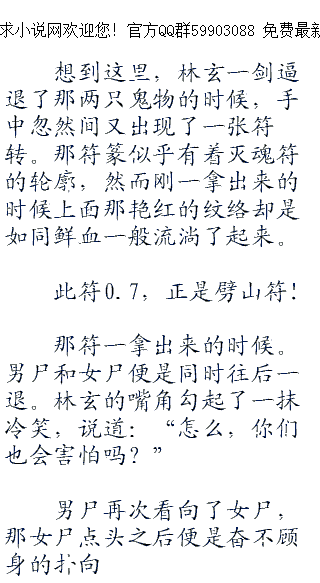 求小说网欢迎您！官方QQ群59903088 免费最新
想到这里，林玄一剑逼
退了那两只鬼物的时候，手
中忽然间又出现了一张符
转。那符篆似乎有着灭魂符
的轮廓，然而刚一拿出来的
时候上面那艳红的纹络却是
如同鲜血一般流淌了起来。
此符0.7，正是劈山符！
那符一拿出来的时候。
男尸和女尸便是同时往后一
退。林玄的嘴角勾起了一抹
冷笑，说道：“怎么，你们
也会害怕吗？”
男尸再次看向了女尸，
那女尸点头之后便是奋不顾
身的扑向